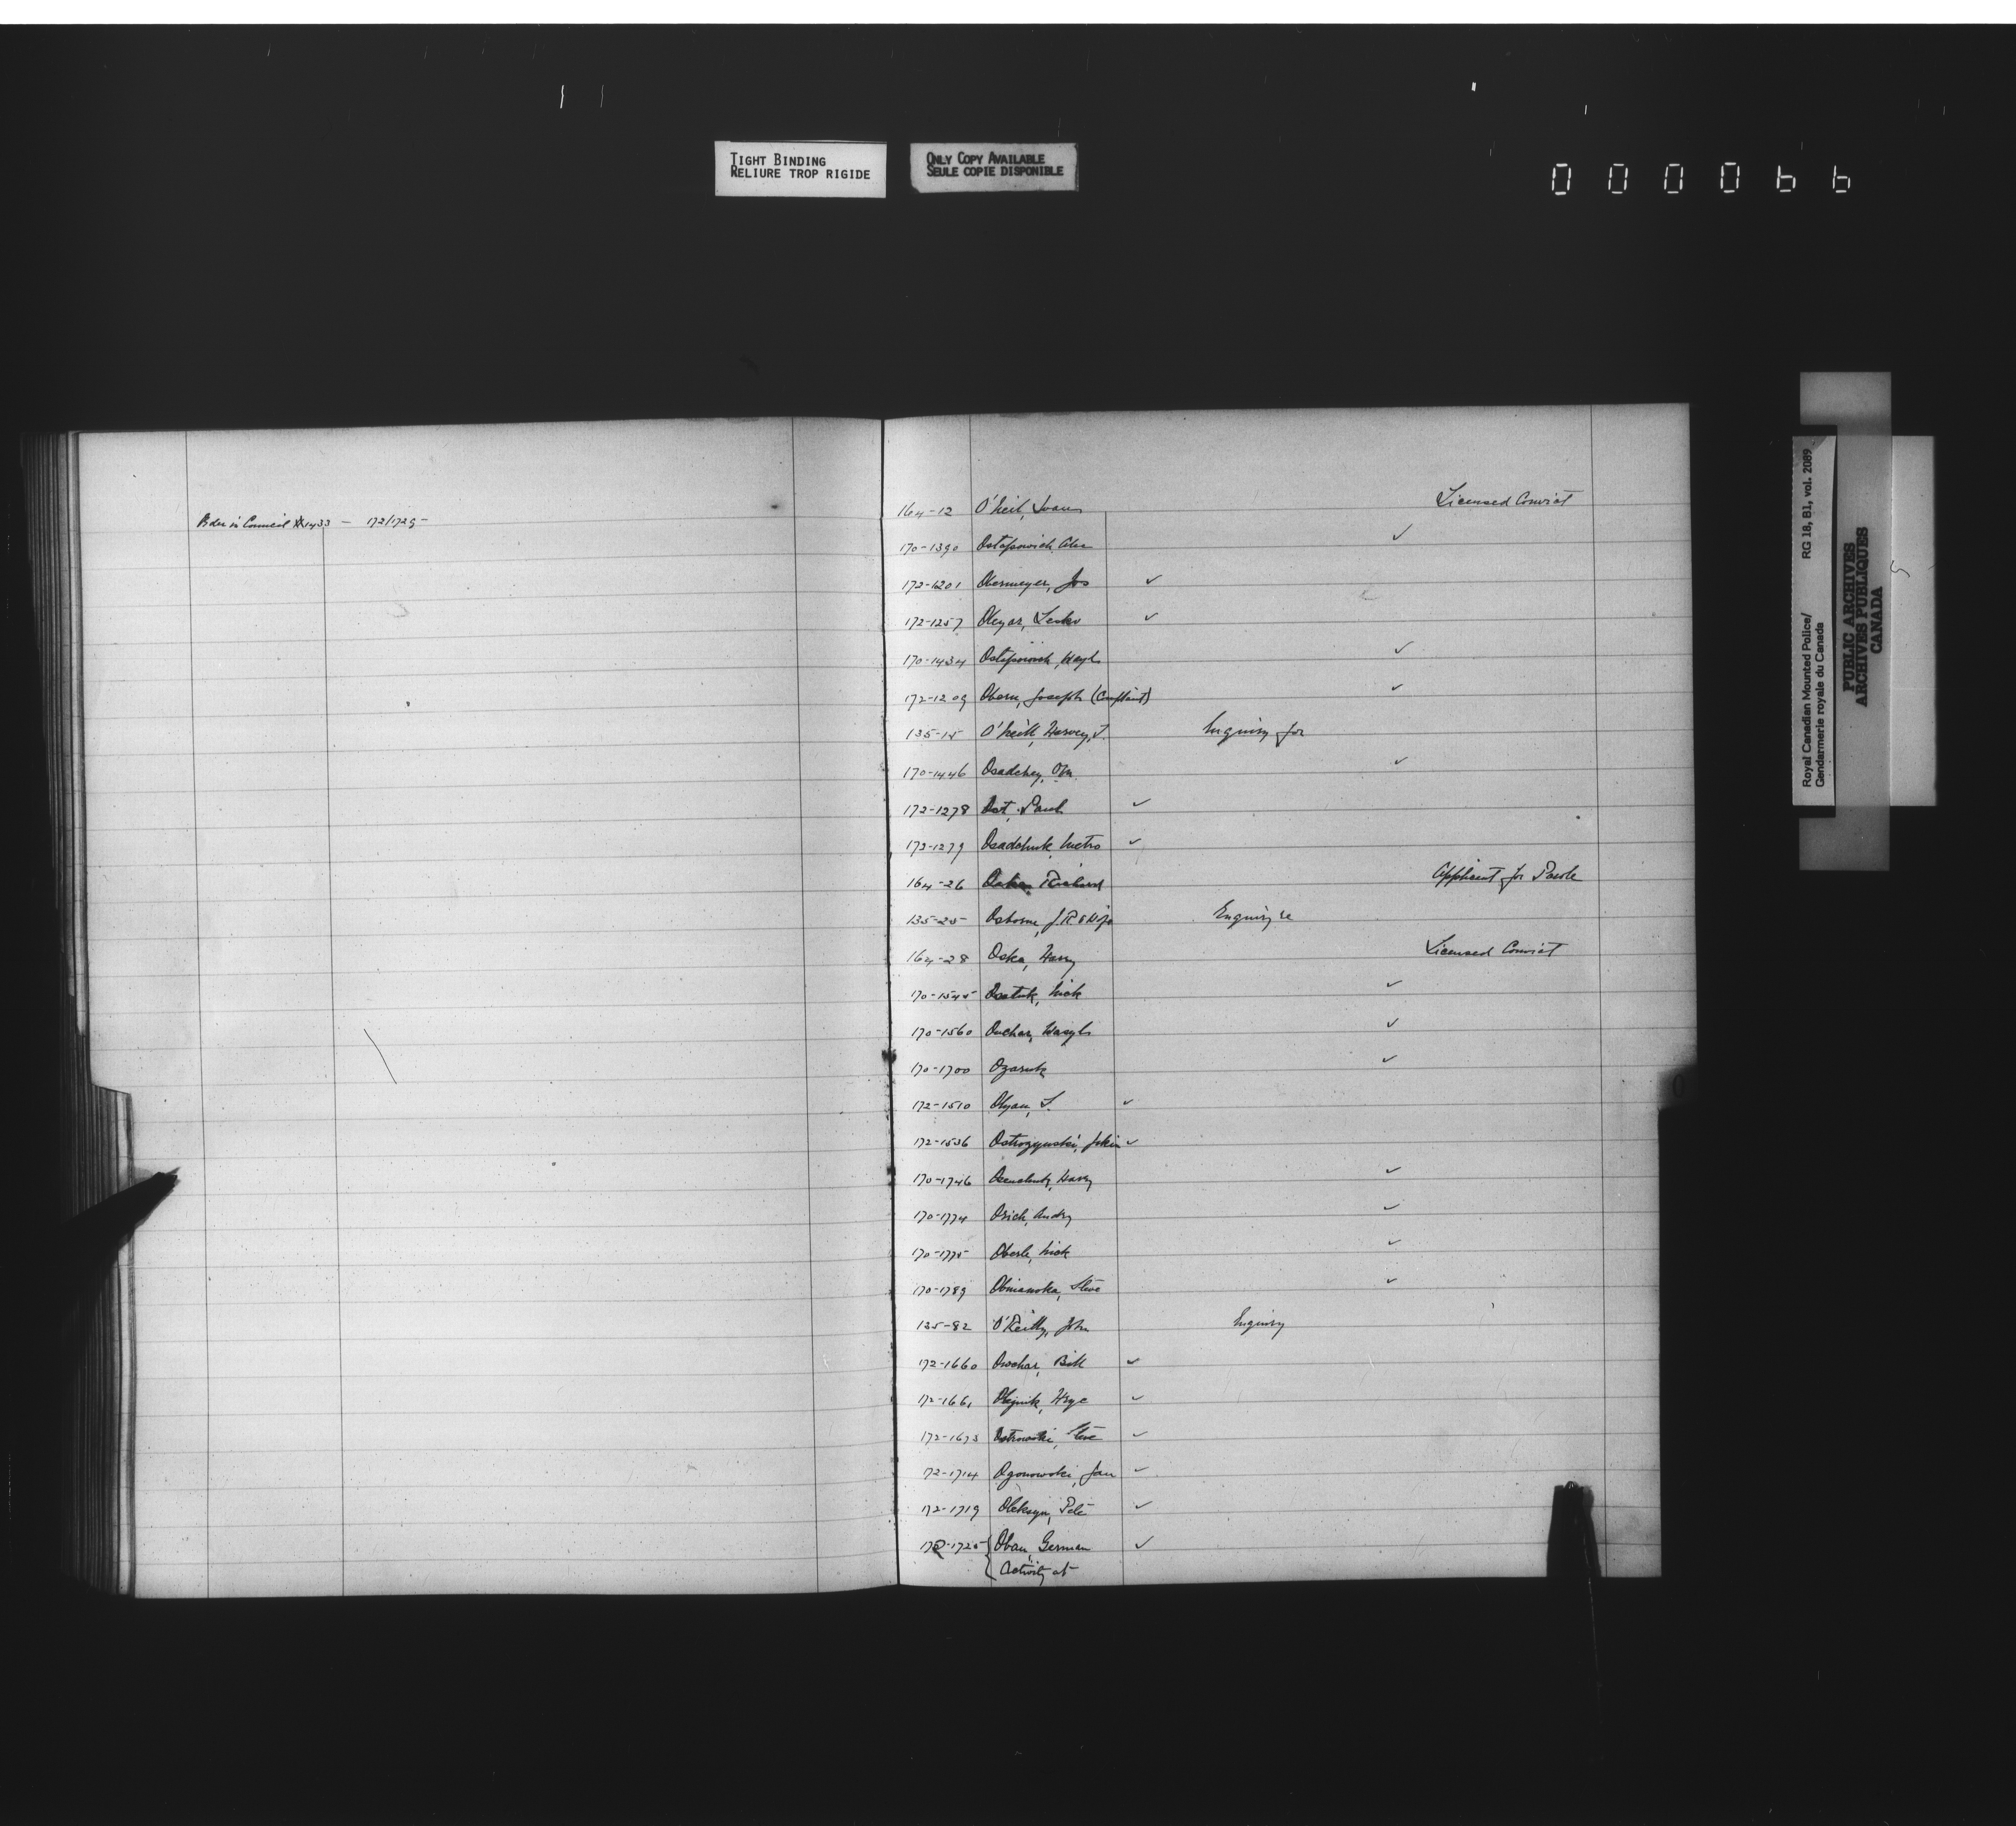 TIGHT BINDING
RELIURE TROP RIGIDE
ONLY COPY AVAILABLE
SEULE COPIE DISPONIBLE
000066
Order in Council #1433 — 172/1729-
164-12 O'Neil, Licensed Convict
170-1390 Ostapowich, Alex ✓
172-1201 Obermeyer, Jos ✓
172-1257 Oleyar, ✓
170-1434 Ostapowich, Wasyl ✓
172-1209 Obern, Joseph (Complaint) ✓
135-15 O'Neill, Harvey, J. Inquiry for
170-1446 Osadchey, Wm. ✓
172-1278 Ost, Paul ✓
172-1279 Osadchuk, Metro ✓
164-26 Richard Applicant for Parole
135-25 Osborne, J.R. & Wife Enquiry re
164-28 Oska, Harry Licensed Convict
170-1545 Nick ✓
170-1560 Wasyl ✓
170-1700 Ozaruk ✓
172-1510 Olyan, S. ✓
172-1536 Ostrozynski, ✓
170-1746 Harry ✓
170-1774 Osich, Andry ✓
170-1775 Oberle, Nick ✓
170-1789 Steve ✓
135-82 O'Reilly, John Inquiry
172-1660 Bill ✓
172-1661 Olejnik, ✓
172-1673 Ostrowski, Steve ✓
172-1714 Ogonowski, Jan ✓
172-1719 Oleksyn, Pete ✓
172-1725 Oban, German ✓
Activity at
O
Royal Canadian Mounted Police/
Gendarmerie royale du Canada
RG 18, B1, vol. 2089
PUBLIC ARCHIVES
ARCHIVES PUBLIQUES
CANADA